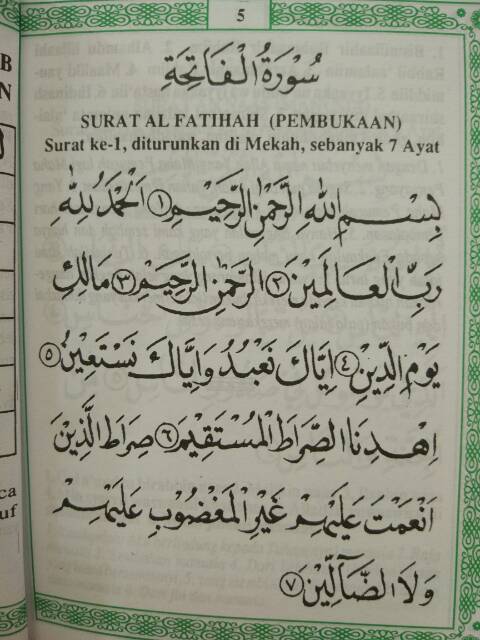 5
سُوْرَةُ الْفَاتِحَةِ
SURAT AL FATIHAH (PEMBUKAAN)
Surat ke-1, diturunkan di Mekah, sebanyak 7 Ayat
بِسْمِ اللهِ الرَّحْمٰنِ الرَّحِيْمِ ١ اَلْحَمْدُ لِلّٰهِ
رَبِّ الْعَالَمِيْنَ ٢ الرَّحْمٰنِ الرَّحِيْمِ ٣ مَالِكِ
يَوْمِ الدِّيْنِ ٤ اِيَّاكَ نَعْبُدُ وَاِيَّاكَ نَسْتَعِيْنُ ٥
اِهْدِنَا الصِّرَاطَ الْمُسْتَقِيْمَ ٦ صِرَاطَ الَّذِيْنَ
اَنْعَمْتَ عَلَيْهِمْ غَيْرِ الْمَغْضُوْبِ عَلَيْهِمْ
وَلَا الضَّآلِّيْنَ ٧